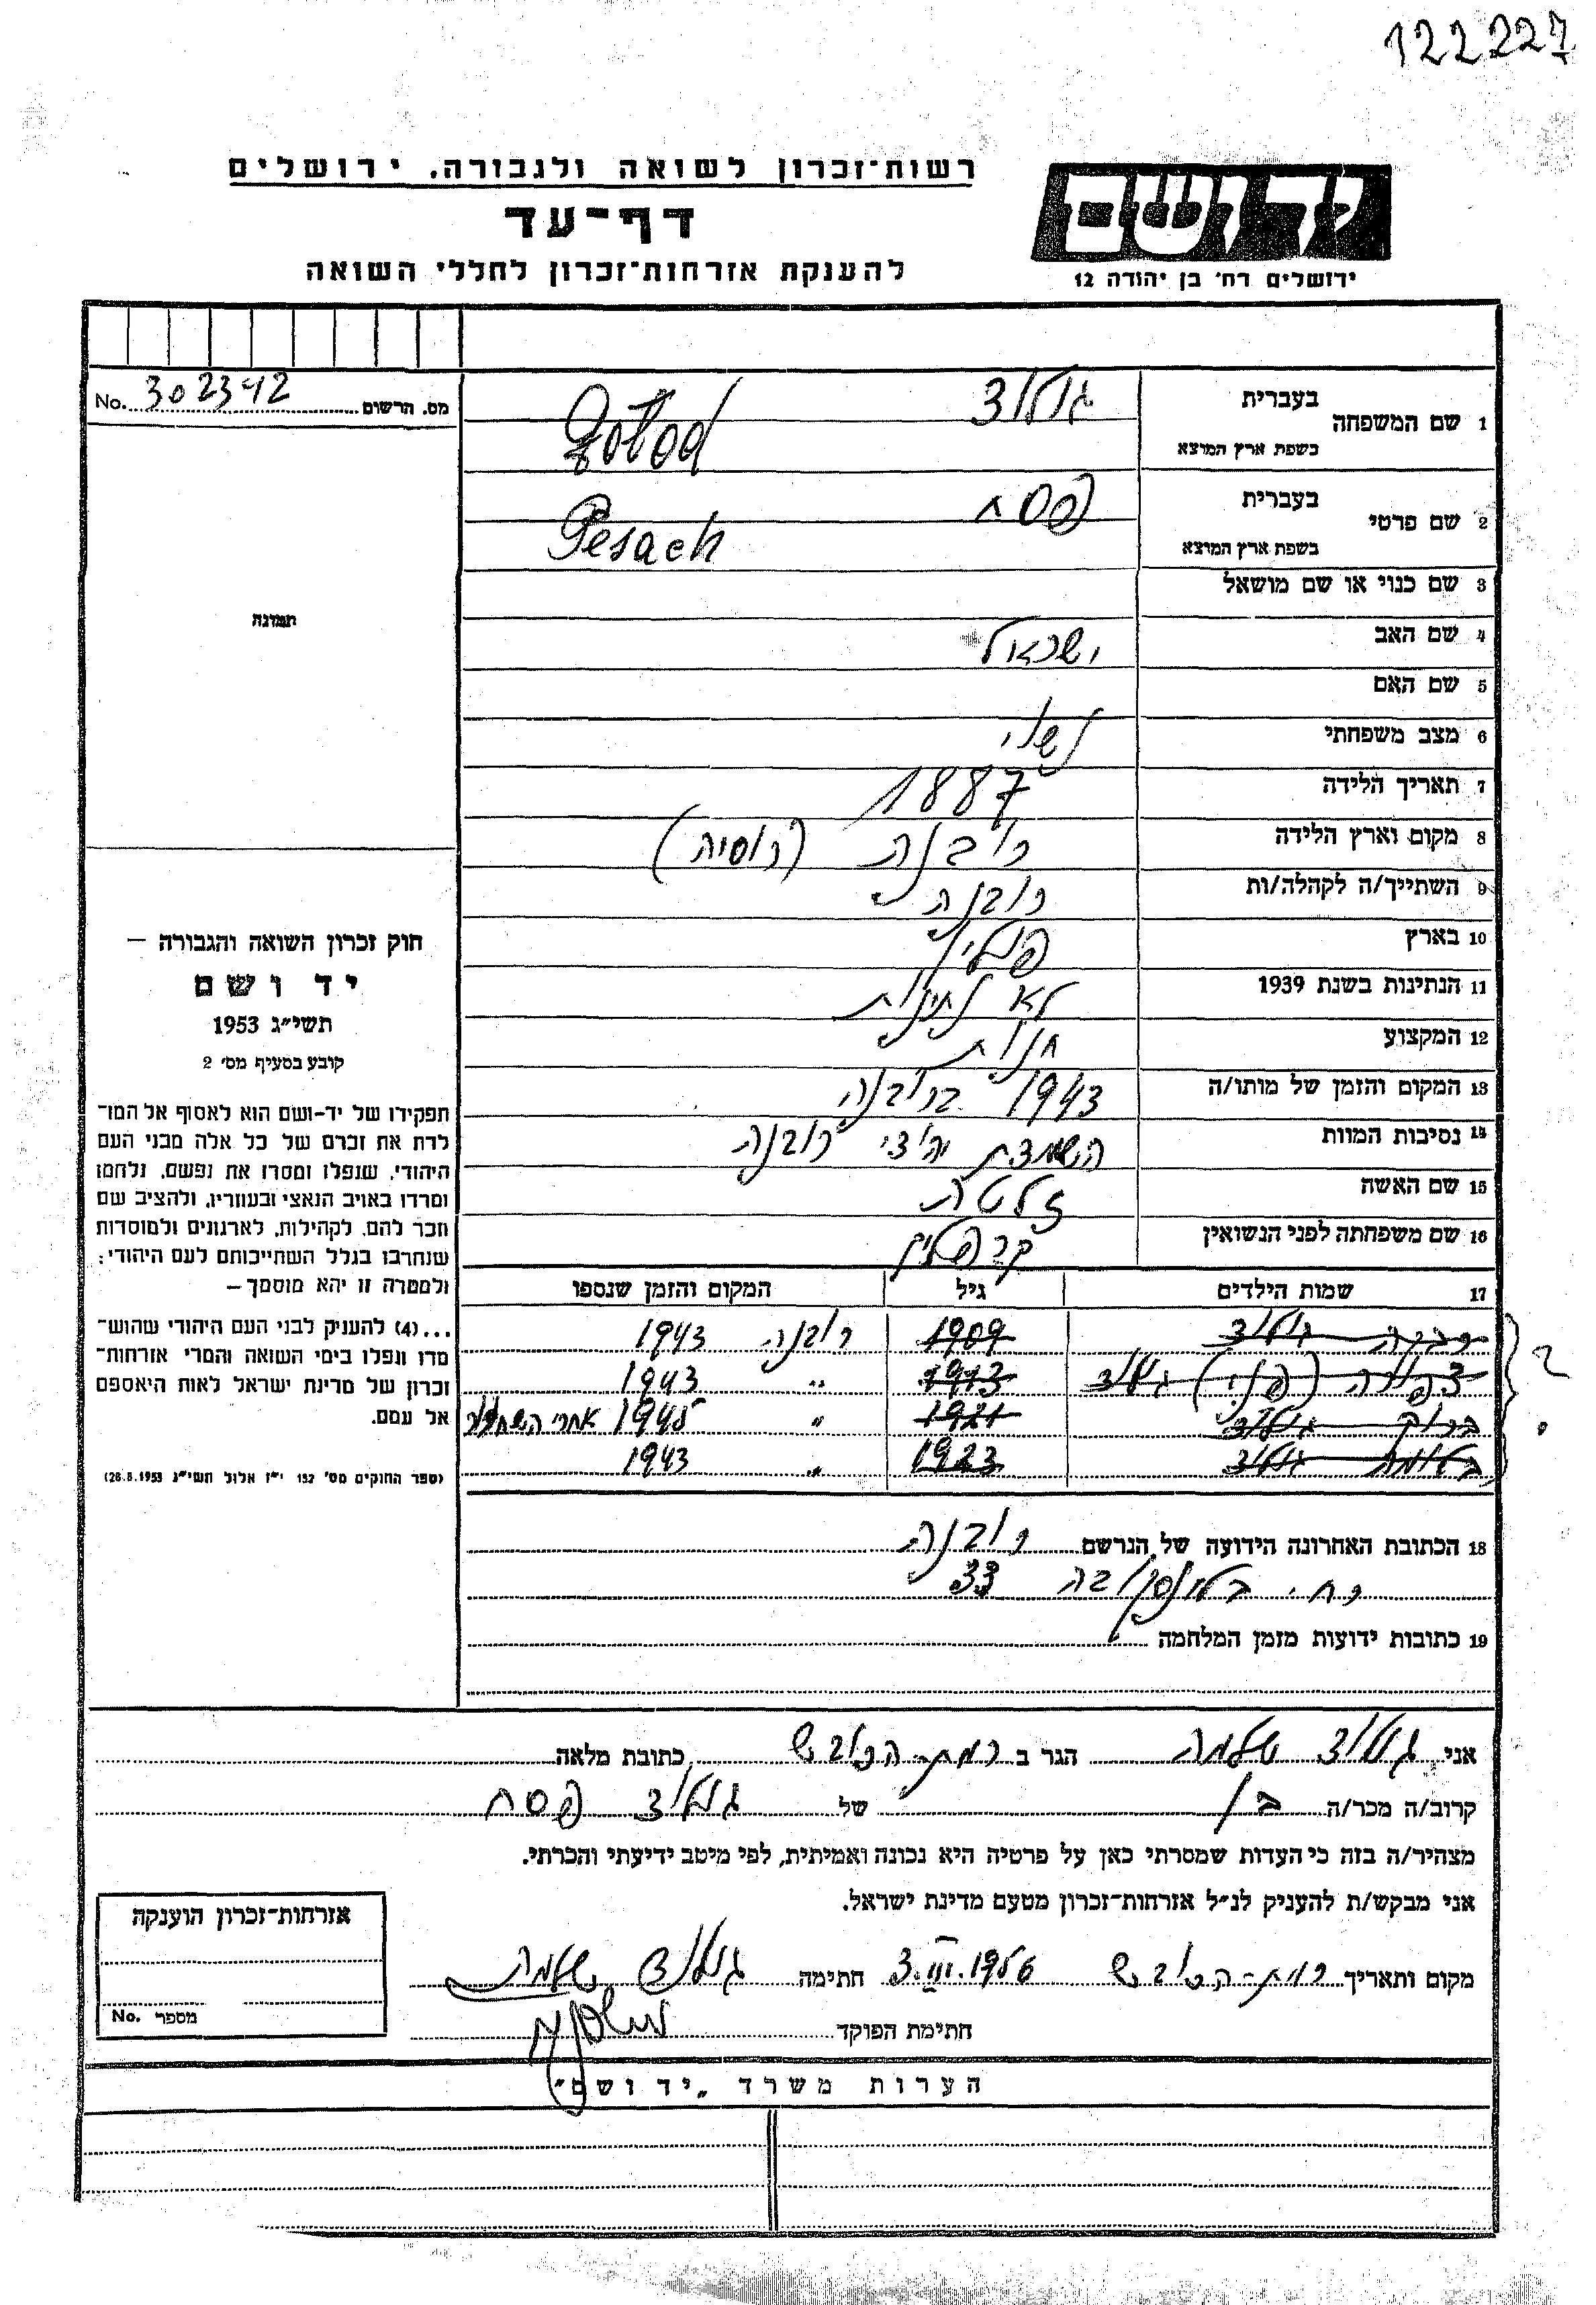 122227
יד ושם
ירושלים רח׳ בן יהודה 12
רשות־זכרון לשואה ולגבורה. ירושלים
דף־עד
להענקת אזרחות־זכרון לחללי השואה
No. 302342 מס. הרשום
תמונה
חוק זכרון השואה והגבורה —
יד ושם
תשי״ג 1953
קובע בסעיף מס׳ 2
תפקידו של יד-ושם הוא לאסוף אל המו־
לדת את זכרם של כל אלה מבני העם
היהודי, שנפלו ומסרו את נפשם, נלחמו
ומרדו באויב הנאצי ובעוזריו, ולהציב שם
וזכר להם, לקהילות, לארגונים ולמוסדות
שנחרבו בגלל השתייכותם לעם היהודי:
ולמטרה זו יהא מוסמך —
...(4) להעניק לבני העם היהודי שהוש־
מדו ונפלו בימי השואה והמרי אזרחות־
זכרון של מדינת ישראל לאות היאספם
אל עמם.
(ספר החוקים מס׳ 132 י״ז אלול תשי״ג 28.8.1953)
1 שם המשפחה בעברית גולוד
בשפת ארץ המוצא Gołod
2 שם פרטי בעברית פסח
בשפת ארץ המוצא Pesach
3 שם כנוי או שם מושאל
4 שם האב ישראל
5 שם האם
6 מצב משפחתי נשוי
7 תאריך הלידה 1887
8 מקום וארץ הלידה רובנה (רוסיה)
9 השתייך/ה לקהלה/ות רובנה
10 בארץ פולין
11 הנתינות בשנת 1939 לא נתינות
12 המקצוע
13 המקום והזמן של מותו/ה 1943 ברובנה
14 נסיבות המוות השמדת יהודי רובנה
15 שם האשה זלטה
16 שם משפחתה לפני הנשואין
17 שמות הילדים גיל המקום והזמן שנספו
רבקה גולוד 1909 רובנה 1943
צפורה (פני) גולוד 1913 " 1943
ברוך גולוד 1921 " 1945 אחרי השחרור
בלומה גולוד 1923 " 1943
?
18 הכתובת האחרונה הידועה של הנרשם רובנה
רח׳ 33
19 כתובות ידועות מזמן המלחמה
אני גולוד שלמה הגר ב רמת-הכובש כתובת מלאה
קרוב/ה מכר/ה בן של גולוד פסח
מצהיר/ה בזה כי העדות שמסרתי כאן על פרטיה היא נכונה ואמיתית, לפי מיטב ידיעתי והכרתי.
אני מבקש/ת להעניק לנ״ל אזרחות־זכרון מטעם מדינת ישראל.
מקום ותאריך רמת-הכובש 3.III.1956 חתימה גולוד שלמה
חתימת הפוקד
אזרחות־זכרון הוענקה
No. מספר
הערות משרד „יד ושם״